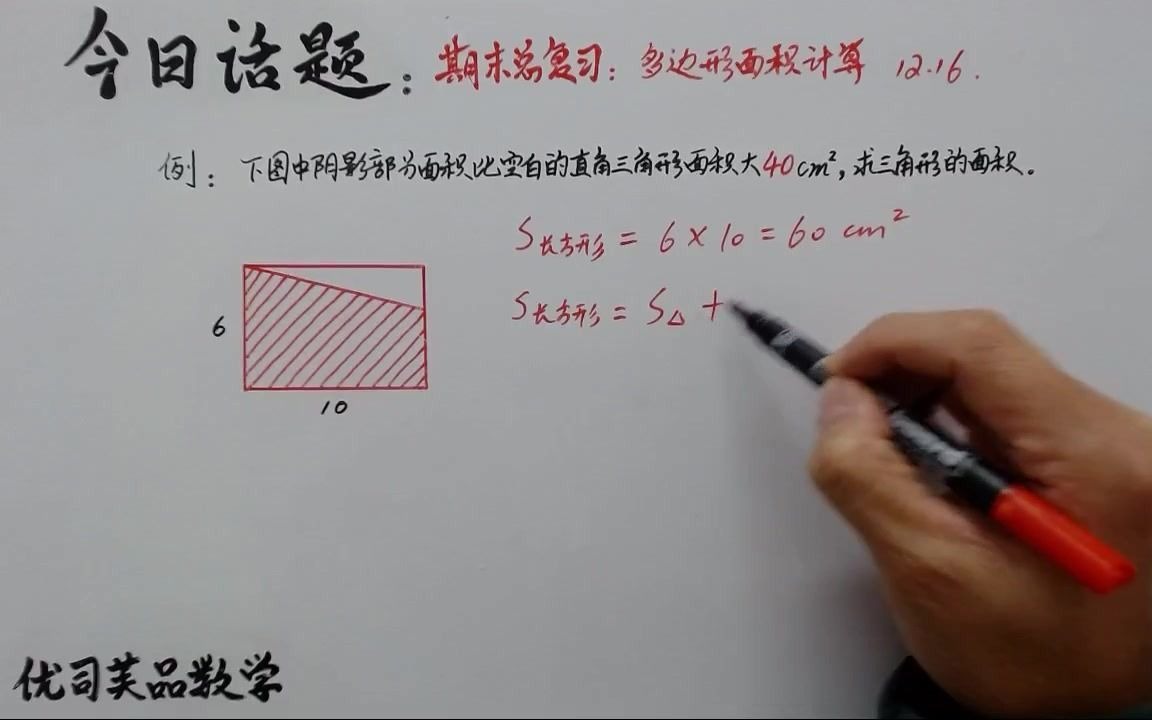 今日话题：期末总复习：多边形面积计算 12.16.
例：下图中阴影部分面积比空白的直角三角形面积大40cm²，求三角形的面积。
S长方形 = 6 × 10 = 60 cm²
S长方形 = S△ +
6
10
优司芙品数学